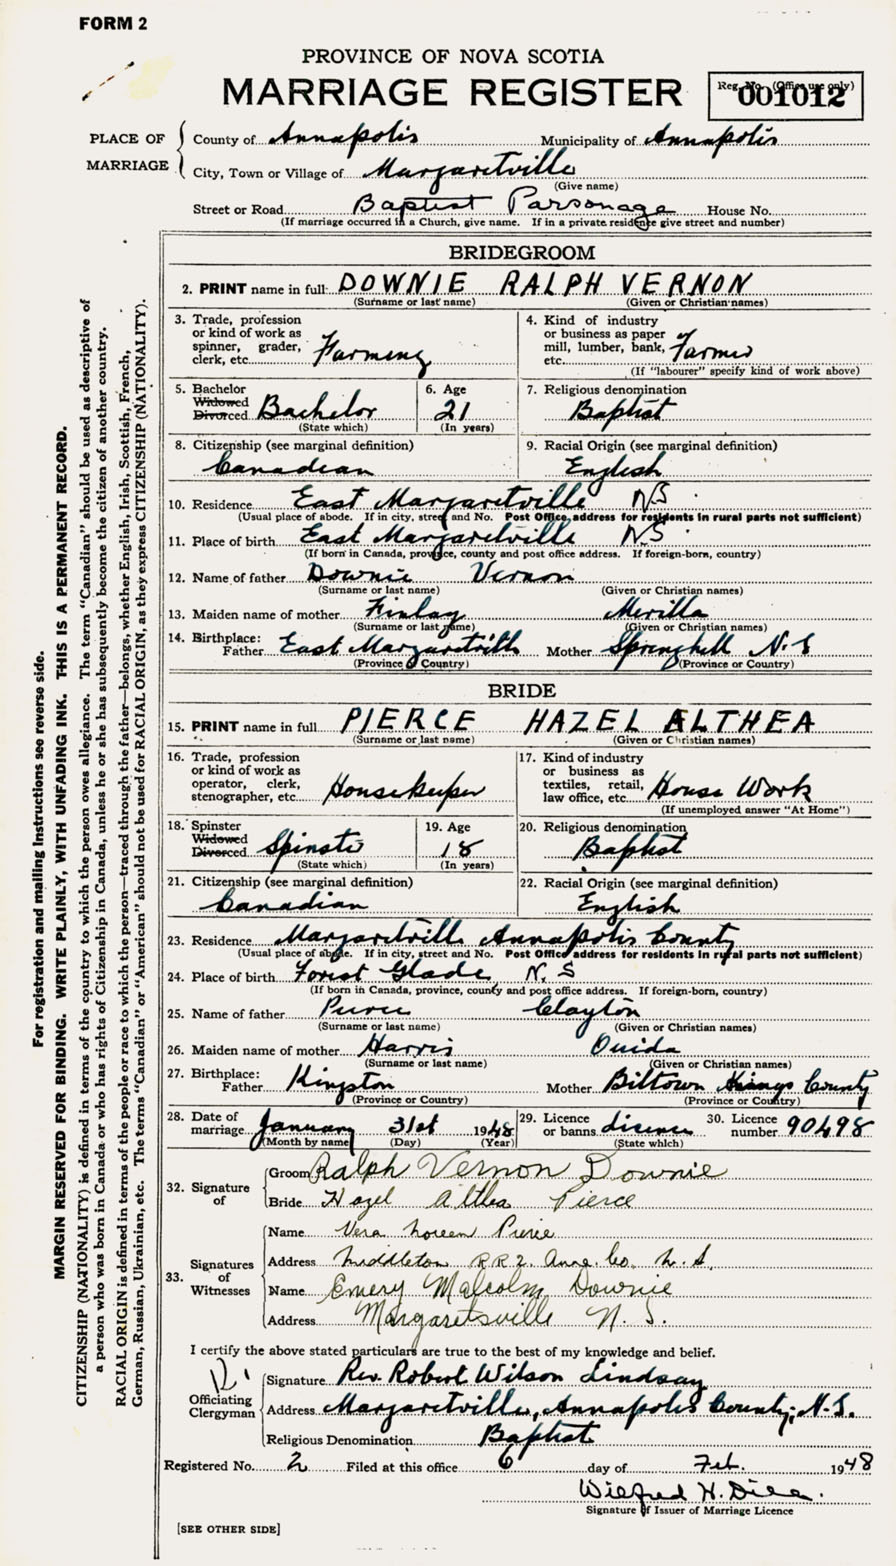 FORM 2
PROVINCE OF NOVA SCOTIA
MARRIAGE REGISTER
Reg. No. (Office use only)
001012
PLACE OF MARRIAGE
County of Annapolis Municipality of Annapolis
City, Town or Village of Margaretville
(Give name)
Street or Road Baptist Parsonage House No.
(If marriage occurred in a Church, give name. If in a private residence give street and number)
BRIDEGROOM
2. PRINT name in full: DOWNIE RALPH VERNON
(Surname or last name) (Given or Christian names)
3. Trade, profession
or kind of work as
spinner, grader,
clerk, etc. Farming
4. Kind of industry
or business as paper
mill, lumber, bank,
etc. Farmer
(If "labourer" specify kind of work above)
5. Bachelor
Widowed
Divorced Bachelor
(State which)
6. Age
21
(In years)
7. Religious denomination
Baptist
8. Citizenship (see marginal definition)
Canadian
9. Racial Origin (see marginal definition)
English
10. Residence East Margaretville NS
(Usual place of abode. If in city, street and No. Post Office address for residents in rural parts not sufficient)
11. Place of birth East Margaretville NS
(If born in Canada, province, county and post office address. If foreign-born, country)
12. Name of father Downie Vernon
(Surname or last name) (Given or Christian names)
13. Maiden name of mother Finlay Merilla
(Surname or last name) (Given or Christian names)
14. Birthplace:
Father East Margaretville Mother Springhill N.S
(Province or Country) (Province or Country)
BRIDE
15. PRINT name in full PIERCE HAZEL ALTHEA
(Surname or last name) (Given or Christian names)
16. Trade, profession
or kind of work as
operator, clerk,
stenographer, etc. Housekeeper
17. Kind of industry
or business as
textiles, retail,
law office, etc. House Work
(If unemployed answer "At Home")
18. Spinster
Widowed
Divorced Spinster
(State which)
19. Age
18
(In years)
20. Religious denomination
Baptist
21. Citizenship (see marginal definition)
Canadian
22. Racial Origin (see marginal definition)
English
23. Residence Margaretville Annapolis County
(Usual place of abode. If in city, street and No. Post Office address for residents in rural parts not sufficient)
24. Place of birth Forest Glade N.S
(If born in Canada, province, county and post office address. If foreign-born, country)
25. Name of father Pierce Clayton
(Surname or last name) (Given or Christian names)
26. Maiden name of mother Harris Ouida
(Surname or last name) (Given or Christian names)
27. Birthplace:
Father Kingston Mother Biltown Kings County
(Province or Country) (Province or Country)
28. Date of
marriage January 31st 1948
(Month by name) (Day) (Year)
29. Licence
or banns License
(State which)
30. Licence
number 90498
32. Signature of
Groom Ralph Vernon Downie
Bride Hazel Althea Pierce
33. Signatures of Witnesses
Name Vera Noreen Pierce
Address Middleton RR2 Anna. Co. N.S.
Name Emery Malcolm Downie
Address Margaretsville N.S.
I certify the above stated particulars are true to the best of my knowledge and belief.
Officiating Clergyman
Signature Rev. Robert Wilson Lindsay
Address Margaretville, Annapolis County, N.S.
Religious Denomination Baptist
Registered No. 2 Filed at this office 6 day of Feb. 1948
Signature of Issuer of Marriage Licence
Wilfred H.
[SEE OTHER SIDE]
For registration and mailing instructions see reverse side.
MARGIN RESERVED FOR BINDING. WRITE PLAINLY, WITH UNFADING INK. THIS IS A PERMANENT RECORD.
CITIZENSHIP (NATIONALITY) is defined in terms of the country to which the person owes allegiance. The term "Canadian" should be used as descriptive of
a person who was born in Canada or who has rights of Citizenship in Canada, unless he or she has subsequently become the citizen of another country.
RACIAL ORIGIN is defined in terms of the people or race to which the person—traced through the father—belongs, whether English, Irish, Scottish, French,
German, Russian, Ukrainian, etc. The terms "Canadian" or "American" should not be used for RACIAL ORIGIN, as they express CITIZENSHIP (NATIONALITY).